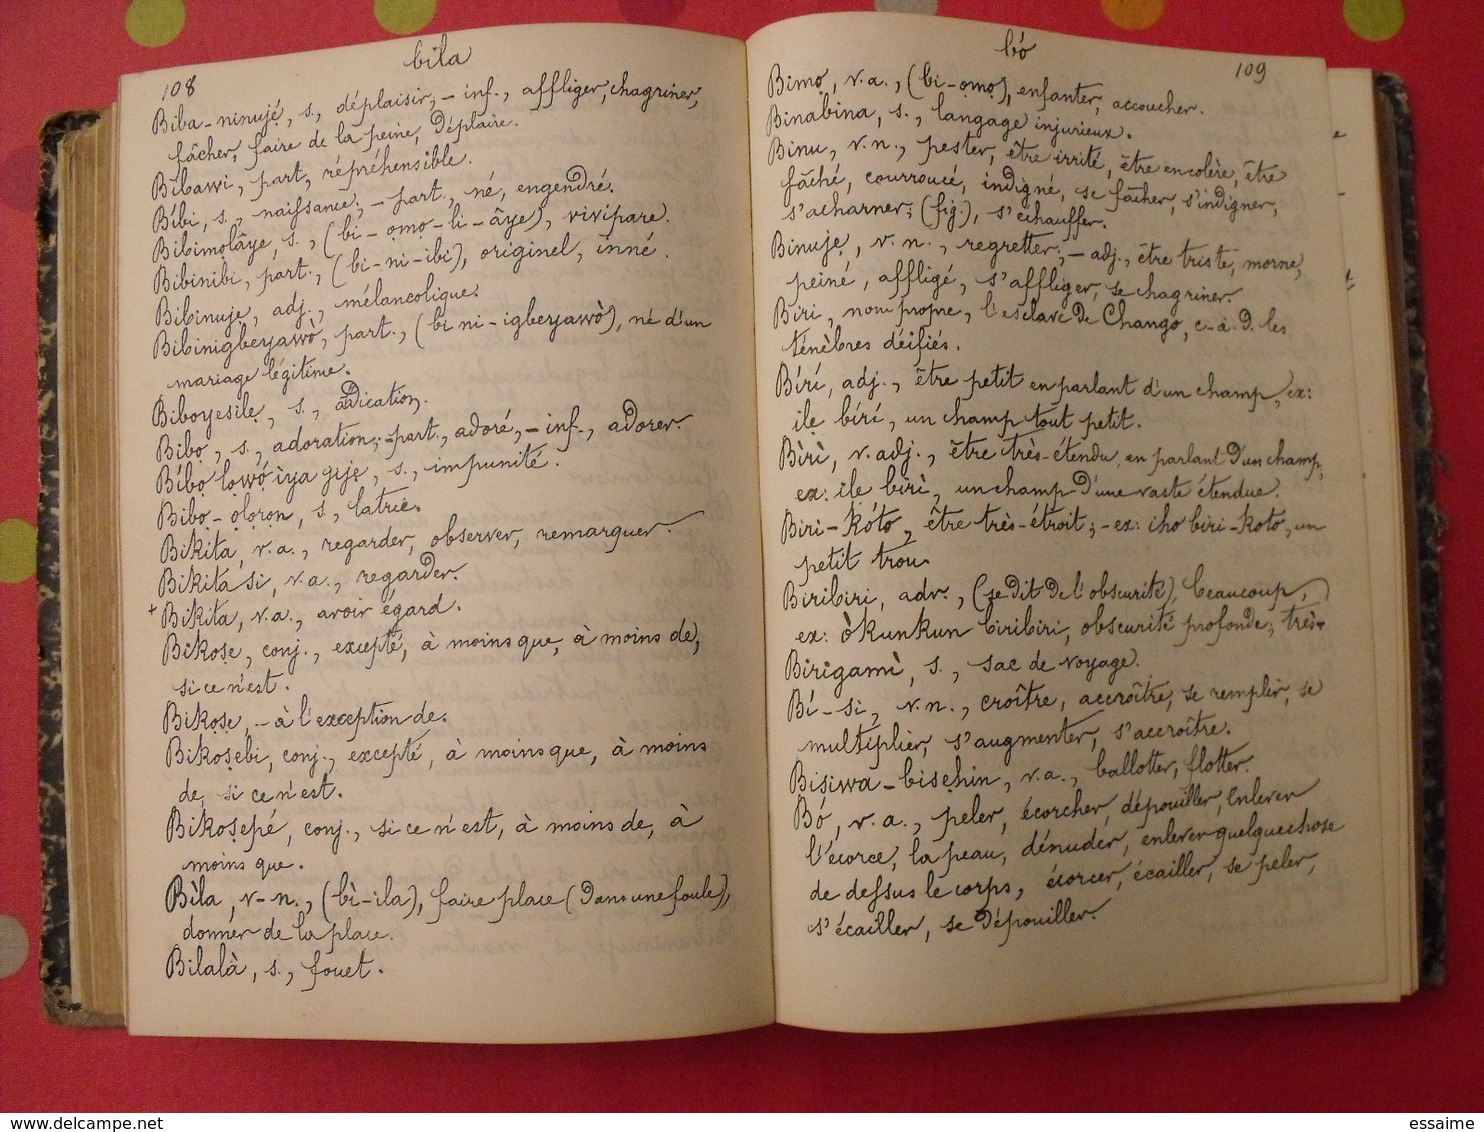 108
bila
Biba-ninujé, s., déplaisir, – inf., affliger, chagriner,
fâcher, faire de la peine, déplaire.
Bibawi, part, répréhensible.
Bíbi, s., naissance; – part., né, engendré.
Bibimolâye, s., (bi-ọmọ-li-âye), vivipare.
Bibinibi, part., (bi-ni-ibi), originel, inné.
Bibinuje, adj., mélancolique.
Bibinigbeyawò, part., (bi ni-igbeyawò), né d'un
mariage légitime.
Biboyesile, s., abdication.
Bibọ, s., adoration; – part., adoré, – inf., adorer.
Bíbọ lọwọ́ iya gijẹ, s., impunité.
Bibọ-ọlọrọn, s., latrie.
Bikita, v.a., regarder, observer, remarquer.
Bikita si, v.a., regarder.
+ Bikita, v.a., avoir égard.
Bikoṣe, conj., excepté, à moins que, à moins de,
si ce n'est.
Bikọṣe, – à l'exception de.
Bikoṣebi, conj., excepté, à moins que, à moins
de, si ce n'est.
Bikoṣepé, conj., si ce n'est, à moins de, à
moins que.
Bìla, v-n., (bì-ila), faire place (dans une foule),
donner de la place.
Bilalà, s., fouet.
bó
109
Bimọ, v.a., (bi-ọmọ), enfanter, accoucher.
Binábina, s., langage injurieux.
Binu, v.n., pester, être irrité, être en colère, être
fâché, courroucé, indigné, se fâcher, s'indigner,
s'acharner; (fig.), s'échauffer.
Binujẹ, v.n., regretter; – adj., être triste, morne,
peiné, affligé, s'affliger, se chagriner.
Biri, nom propre, l'esclave de Chango, c-à-d. les
ténèbres déifiés.
Bírí, adj., être petit en parlant d'un champ, ex:
ilẹ bírí, un champ tout petit.
Bìrì, v.adj., être très-étendu, en parlant d'un champ,
ex: ile bìrì, un champ d'une vaste étendue.
Biri-kóto, être très-étroit; – ex: iho biri-koto, un
petit trou.
Biribiri, adv., (se dit de l'obscurité), beaucoup,
ex: òkunkun biribiri, obscurité profonde; très-
Birigamì, s., sac de voyage.
Bí-si, v.n., croître, accroître, se remplir, se
multiplier, s'augmenter, s'accroître.
Biṣiwa-biṣẹhin, v.a., ballotter, flotter.
Bó, v.a., peler, écorcher, dépouiller, enlever
l'écorce, la peau, dénuder, enlever quelque chose
de dessus le corps, écorcer, écailler, se peler,
s'écailler, se dépouiller.
www.delcampe.net
essaime